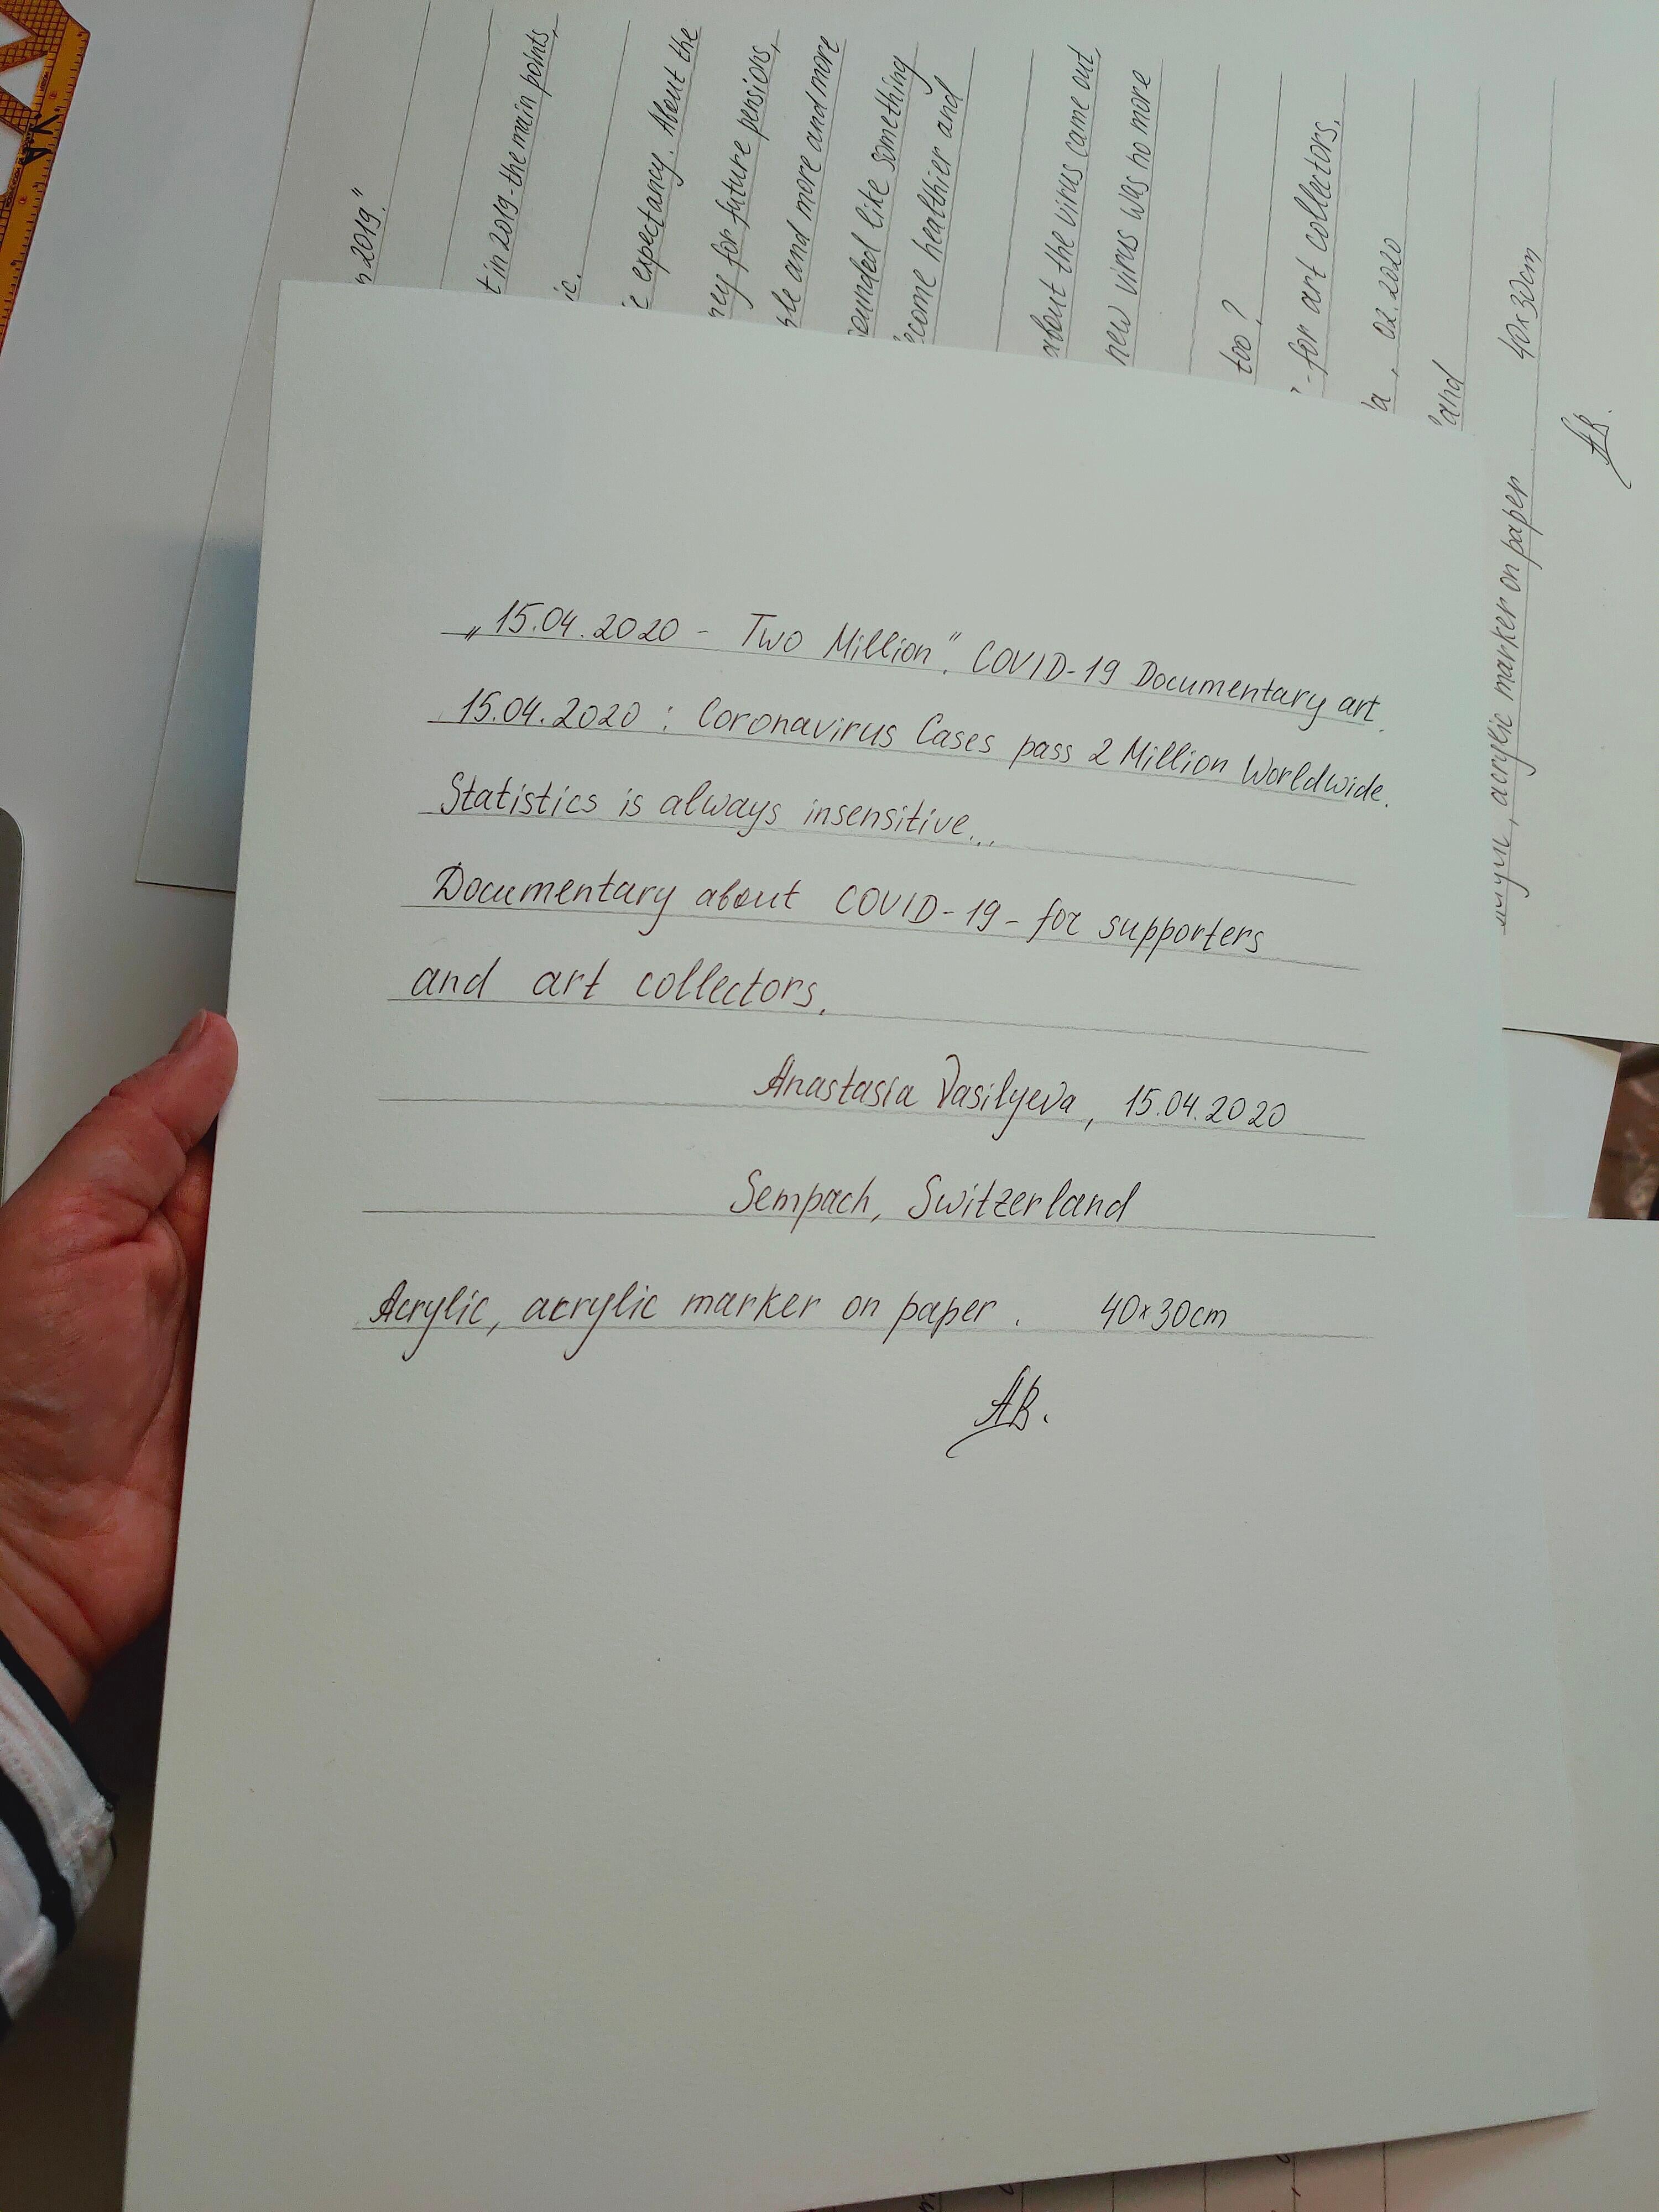 „15.04.2020 - Two Million". COVID-19 Documentary art.
15.04.2020 : Coronavirus Cases pass 2 Million Worldwide.
Statistics is always insensitive...
Documentary about COVID-19 - for supporters
and art collectors.
Anastasia Vasilyeva, 15.04.2020
Sempach, Switzerland
Acrylic, acrylic marker on paper. 40x30cm
AB.
2019"
in 2019 - the main points,
expectancy. About the
for future pensions,
and more and more
like something
healthier and
about the virus came out,
new virus was no more
too?
- for art collectors.
, 02.2020
, acrylic marker on paper 40x30cm
AB.